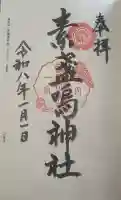 奉拝
素盞嗚神社
令和八年一月一日